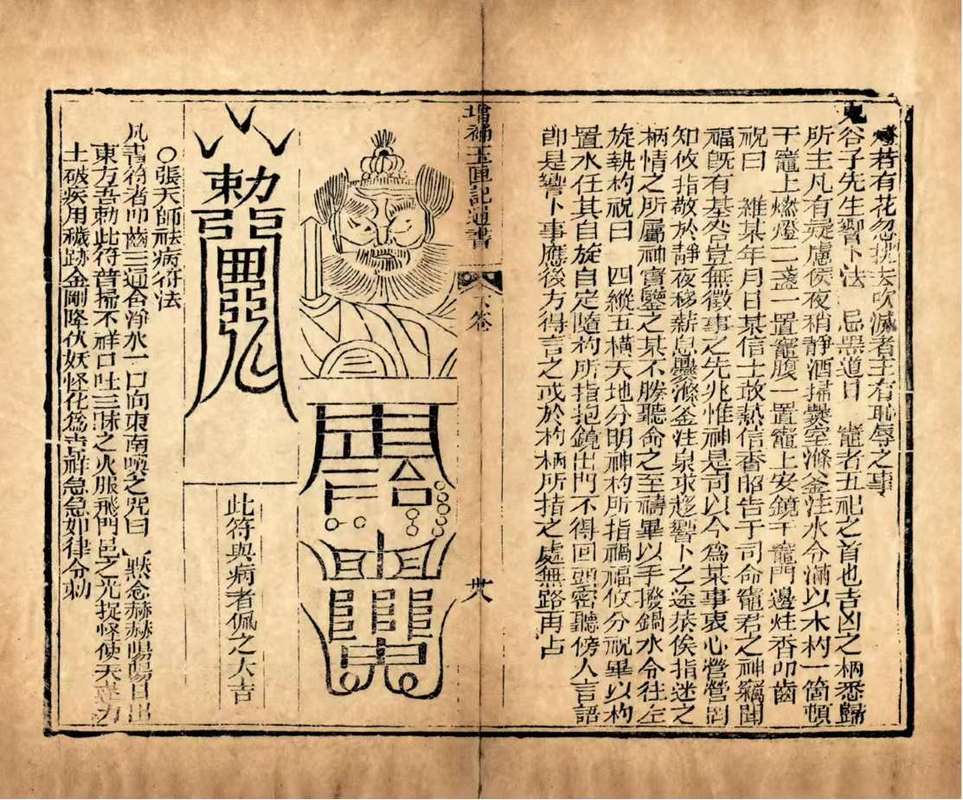 若有花忽吹滅者主有恥辱之事
鬼谷子先生響卜法 忌黑道日 竈者五祀之首也吉凶之柄悉歸
所主凡有疑慮俟夜稍靜洒掃爨室滌釜注水令滿以木杓一箇頓
于竈上燃燈二盞一置竈腹一置竈上安鏡于竈門邊炷香叩齒
祝曰 維某年月日某信士敢爇信香昭告于司命竈君之神竊聞
福既有基咎豈無徵事之先兆惟神是司以今為某事衷心營營罔
知攸指敬於靜夜移薪息爨滌釜注泉求趨響卜之途俟指迷之
柄情之所屬神實鑒之某不勝聽命之至禱畢以手撥鍋水令往左
旋執杓祝曰 四縱五橫天地分明神杓所指禍福攸分祝畢以杓
置水任其自旋自定隨杓所指抱鏡出門不得回頭密聽傍人言語
即是響卜事應後方得言之或於杓柄所指之處無路再占
增補玉匣記通書
卷
廿八
敕
此符與病者佩之大吉
○張天師祛病符法
凡書符者叩齒三通含淨水一口向東南噀之咒曰 默念赫赫陽陽日出
東方吾勅此符普掃不祥口吐三昧之火服飛門邑之光捉怪使天蓬力
士破疾用穢跡金剛降伏妖怪化為吉祥急急如律令勅